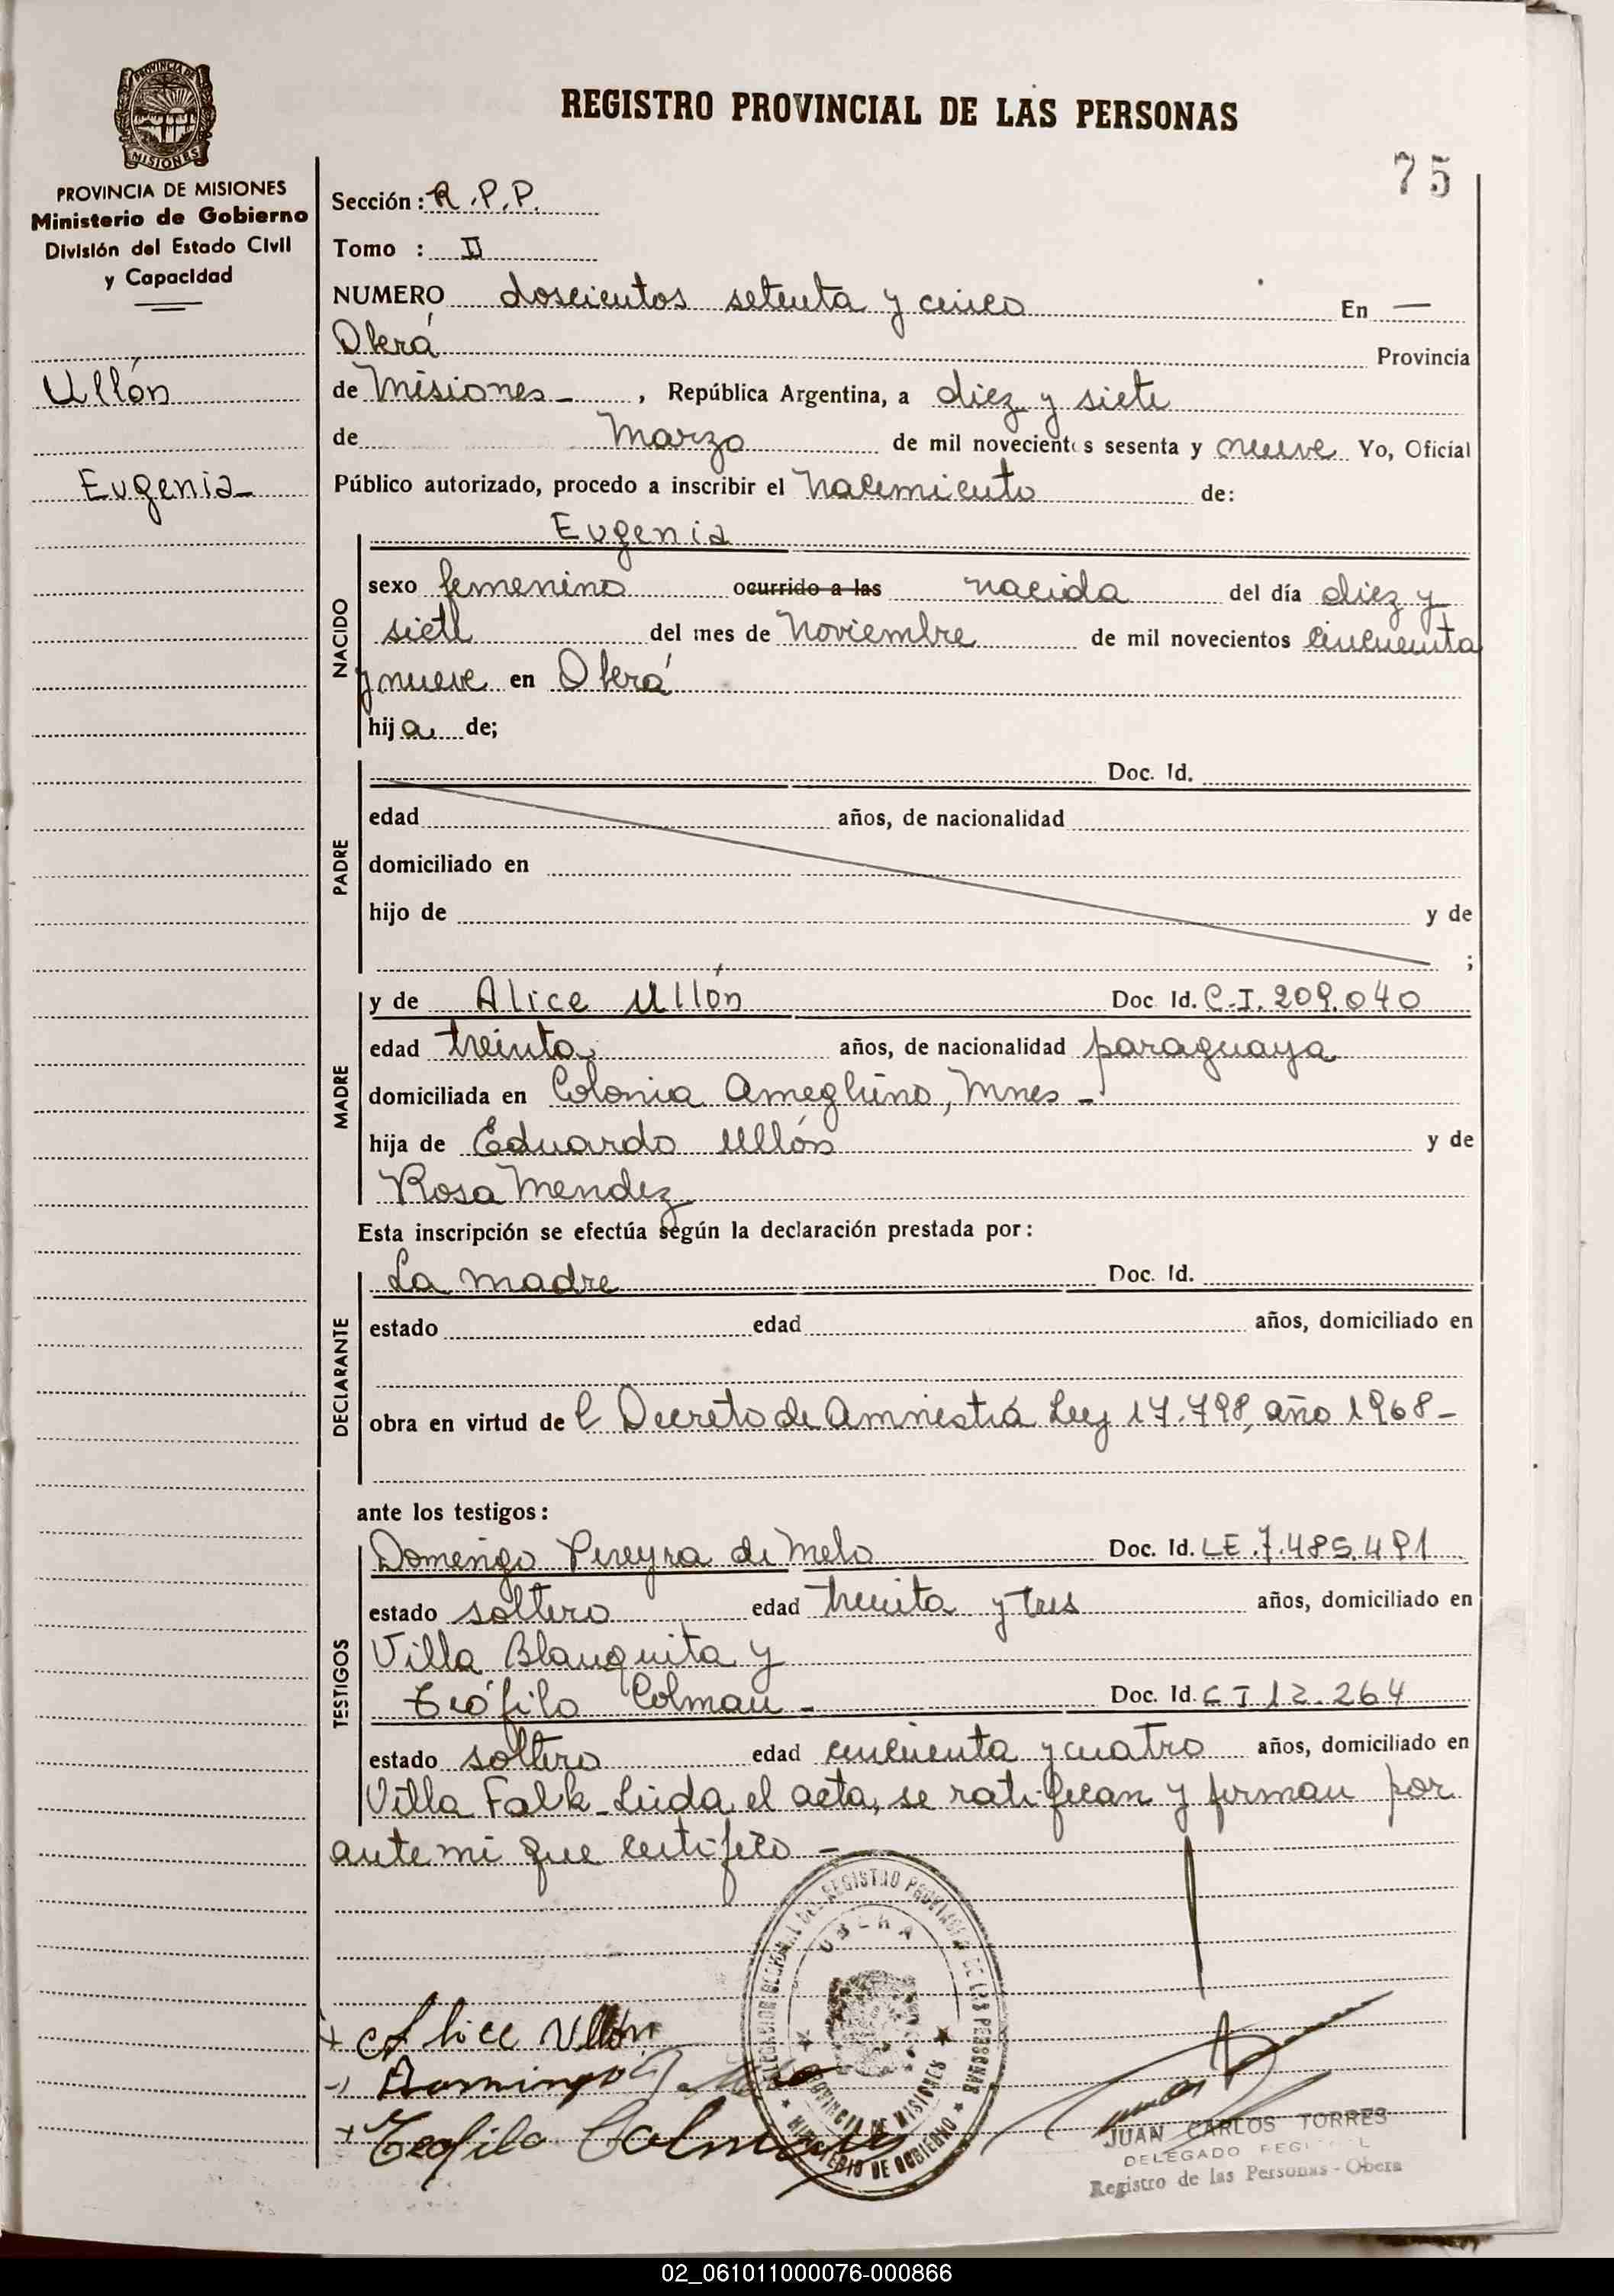 REGISTRO PROVINCIAL DE LAS PERSONAS
PROVINCIA DE MISIONES
PROVINCIA DE MISIONES
Ministerio de Gobierno
División del Estado Civil
y Capacidad
Ullón
Eugenia
75
Sección: R.P.P.
Tomo : II
NUMERO doscientos setenta y cinco En —
Oberá Provincia
de Misiones - , República Argentina, a diez y siete
de Marzo de mil novecientos sesenta y nueve Yo, Oficial
Público autorizado, procedo a inscribir el nacimiento de:
NACIDO
Eugenia
sexo femenino ocurrido a las nacida del día diez y
siete del mes de Noviembre de mil novecientos cincuenta
y nueve en Oberá
hija de;
PADRE
Doc. Id.
edad años, de nacionalidad
domiciliado en
hijo de y de
;
MADRE
y de Alice Ullón Doc. Id. C.I. 209.040
edad treinta años, de nacionalidad paraguaya
domiciliada en Colonia Ameghino, Mnes -
hija de Eduardo Ullón y de
Rosa Mendez
Esta inscripción se efectúa según la declaración prestada por:
DECLARANTE
La madre Doc. Id.
estado edad años, domiciliado en
obra en virtud de l Decreto de Amnestiá Ley 17.798, año 1968 -
ante los testigos:
TESTIGOS
Domingo Pereyra de Melo Doc. Id. LE.7.485.491
estado soltero edad treinta y tres años, domiciliado en
Villa Blanquita y
Teófilo Colman - Doc. Id. CI 12.264
estado soltero edad cincuenta y cuatro años, domiciliado en
Villa Falk - Leida el acta, se ratifican y firman por
ante mi que certifico -
Alice Ullón
Domingo
Teofilo Colman
OBERA
PROVINCIA DE MISIONES
MINISTERIO DE GOBIERNO
JUAN CARLOS TORRES
DELEGADO
Registro de las Personas - Obera
02_061011000076-000866